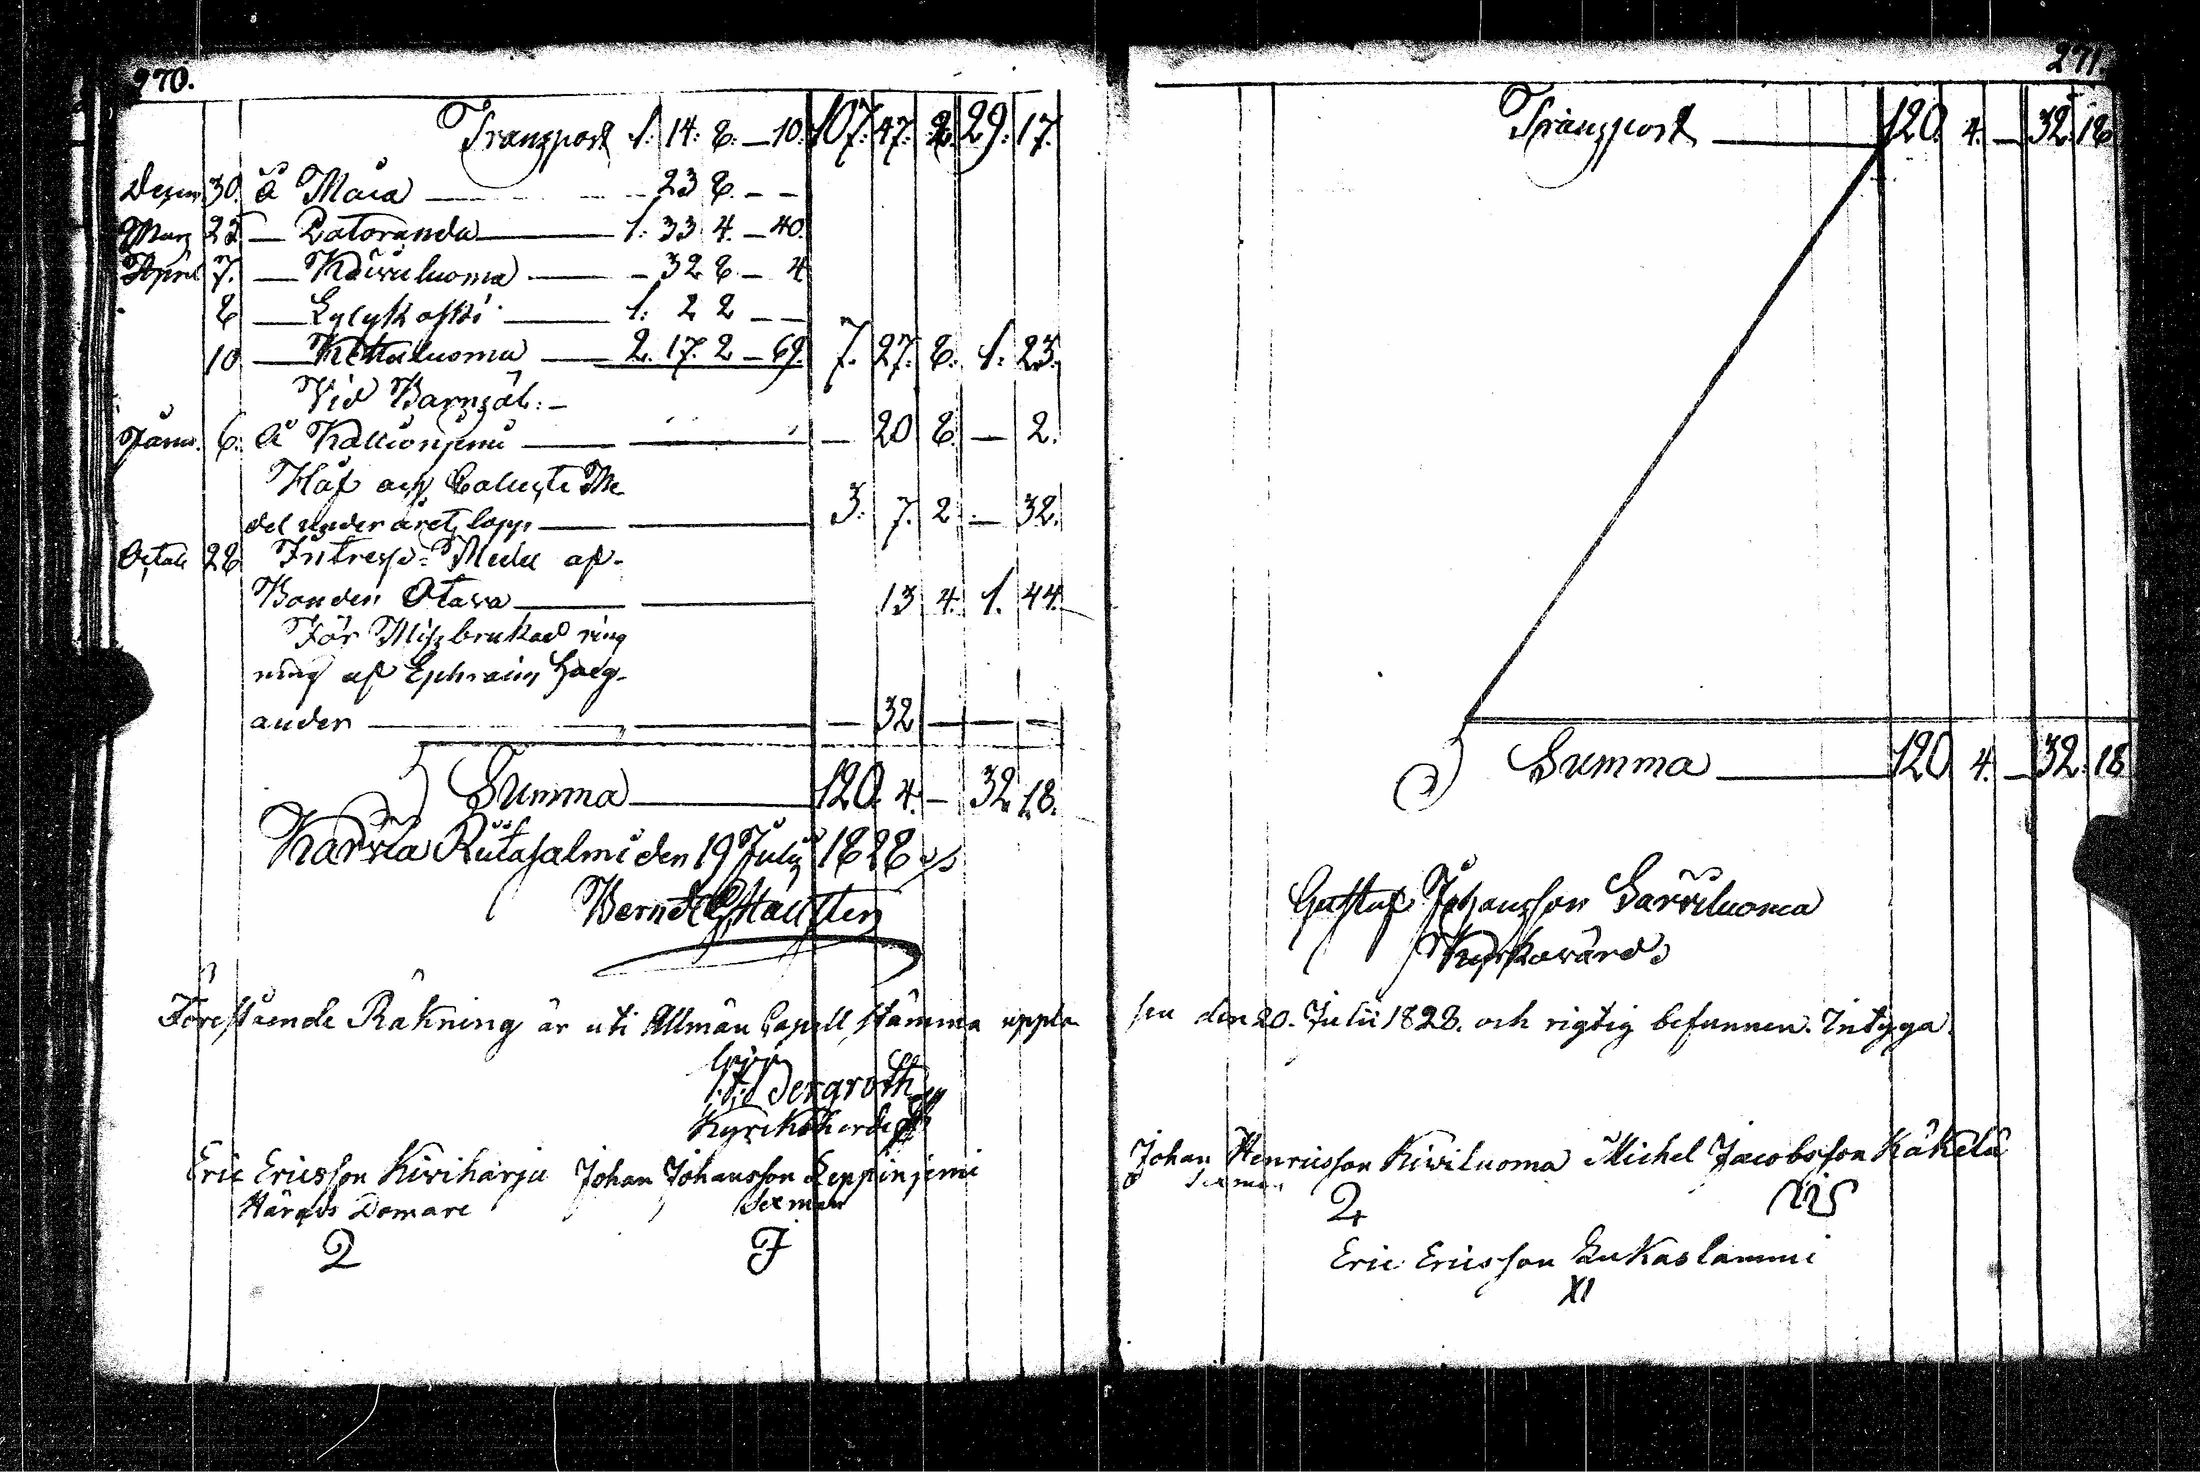 270.
Transport 1. 14. 8. — 10. 107. 47. 2. 29. 17.
Decem. 30. å Maia — 23 8. — —
Mars 25 — Latoranda — 1. 33 4. — 40.
April 7. — Kiwiluoma — 32 8 — 4
8 — Lylykoski — 1. 2 2 — —
10 — Kettuluoma — 2. 17. 2 — 69. 7. 27. 8. 1. 23.
Vid Barnsöl: —
Janu. 6. å Kallionjemi — 20 8. — 2.
Håf och Collect Me
del under årets lopp — 3. 7. 2 — 32.
Octob 28 Intresse Medel af
Bonden Otava — 13 4. 1. 44.
För Missbrukad ring
ning af Ephraim Haeg-
ander — — 32 — — —
Summa — 120. 4. — 32. 18.
Karvia Rutasalmi den 19 July 1828
Bernd Hausten
Förestående Räkning är uti Allmän Capell stämma uppläsen
J. F. Bergroth
Kyrkoherde
Eric Ericsson Kiviharju Johan Johansson Leppinjemi
Härads Domare Sexman
2 J
271
Transport — 120. 4. — 32. 18
Summa — 120 4. — 32. 18
Gustaf Johansson Sarviluoma
Kyrkovärd
sen den 20. Julii 1828. och rigtig befunnen. Intyga
Johan Henricsson Kiwiluoma Michel Jacobsson Käkelä
Sexman
2
Eric Ericsson Lukaslammi
XI